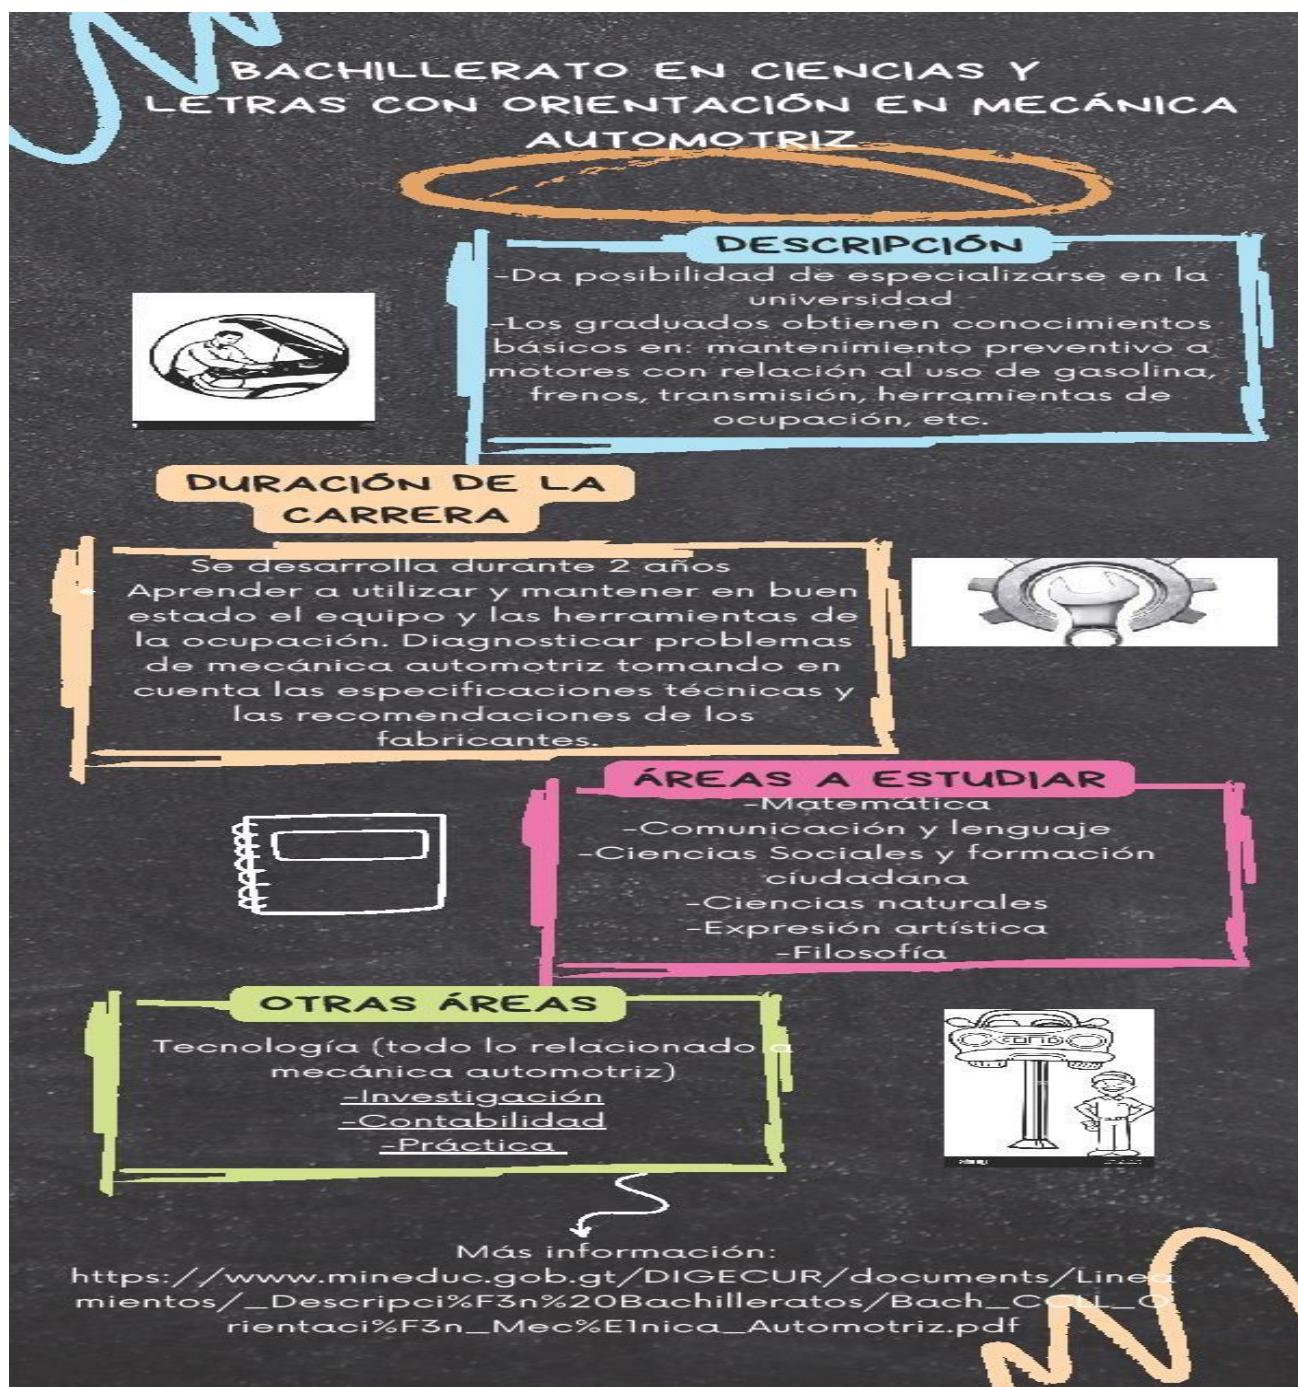 BACHILLERATO EN CIENCIAS Y
LETRAS CON ORIENTACIÓN EN MECÁNICA
AUTOMOTRIZ
DESCRIPCIÓN
-Da posibilidad de especializarse en la
universidad
-Los graduados obtienen conocimientos
básicos en: mantenimiento preventivo a
motores con relación al uso de gasolina,
frenos, transmisión, herramientas de
ocupación, etc.
DURACIÓN DE LA
CARRERA
Se desarrolla durante 2 años
Aprender a utilizar y mantener en buen
estado el equipo y las herramientas de
la ocupación. Diagnosticar problemas
de mecánica automotriz tomando en
cuenta las especificaciones técnicas y
las recomendaciones de los
fabricantes.
ÁREAS A ESTUDIAR
-Matemática
-Comunicación y lenguaje
-Ciencias Sociales y formación
ciudadana
-Ciencias naturales
-Expresión artística
-Filosofía
OTRAS ÁREAS
Tecnología (todo lo relacionado a
mecánica automotriz)
-Investigación
-Contabilidad
-Práctica
Más información:
https://www.mineduc.gob.gt/DIGECUR/documents/Linea
mientos/_Descripci%F3n%20Bachilleratos/Bach_CCLL_O
rientaci%F3n_Mec%E1nica_Automotriz.pdf